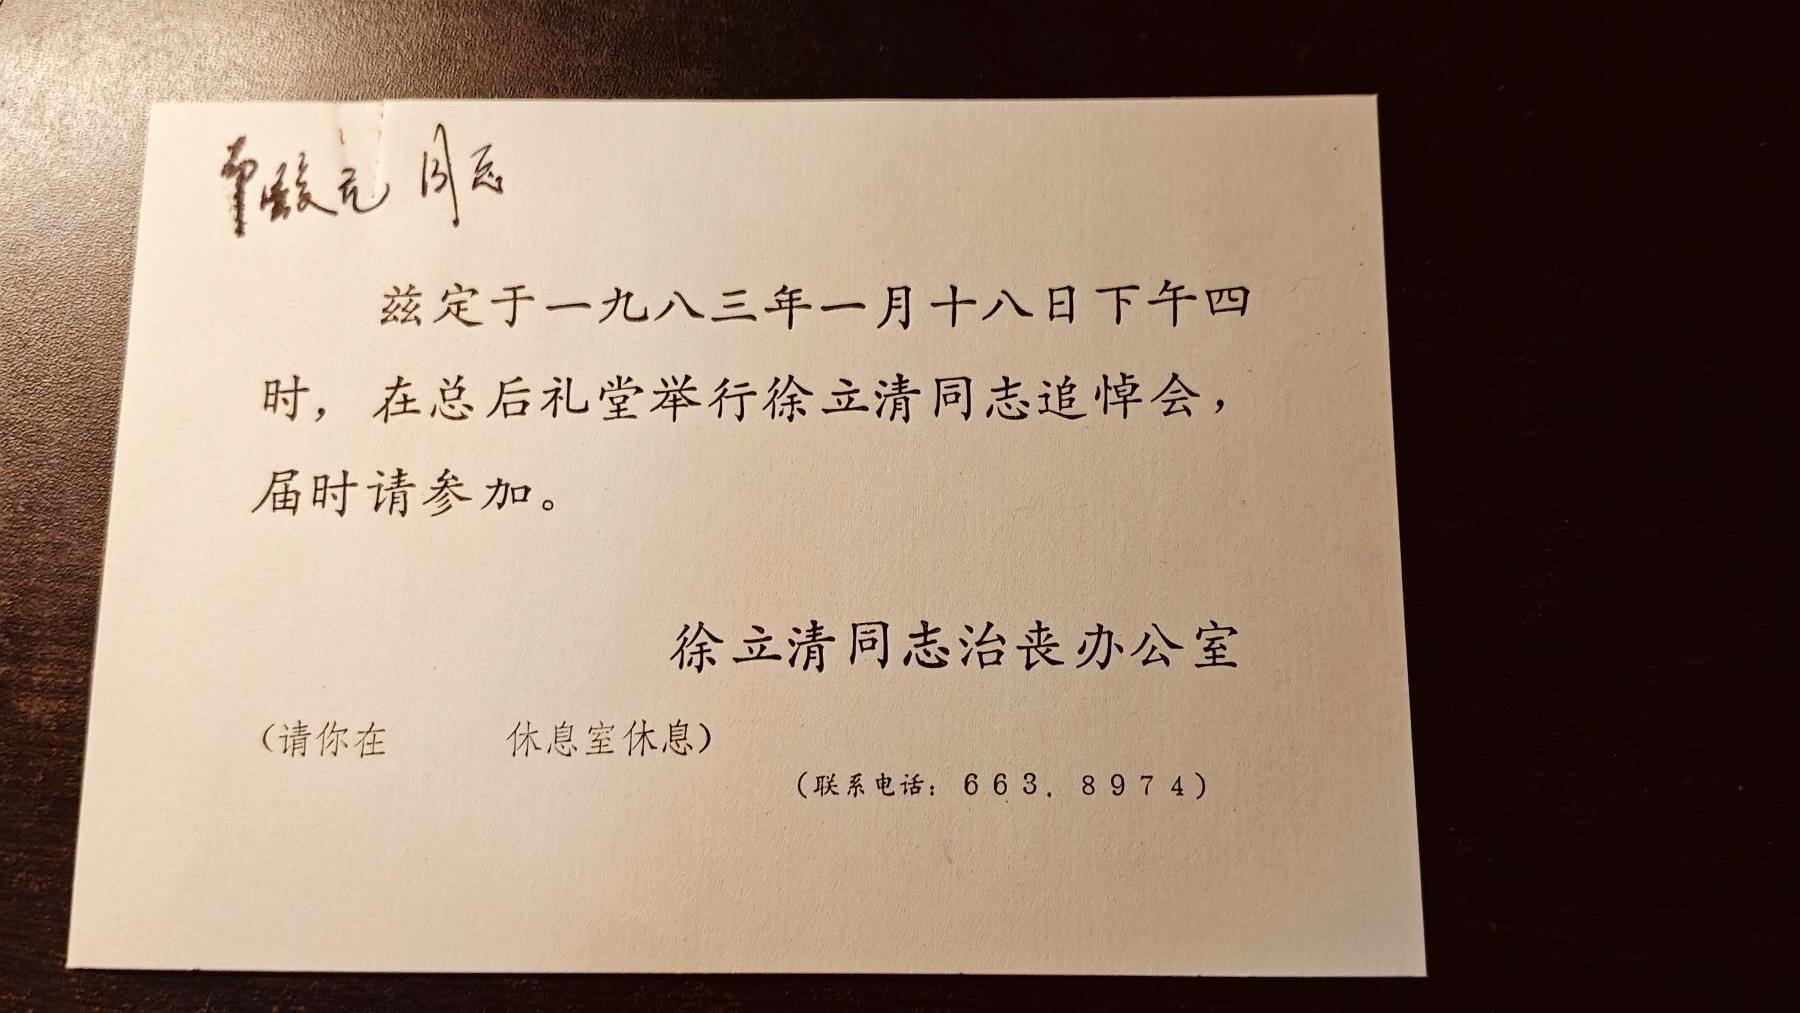 同志
兹定于一九八三年一月十八日下午四
时，在总后礼堂举行徐立清同志追悼会，
届时请参加。
徐立清同志治丧办公室
（请你在　　　休息室休息）
（联系电话：663．8974）